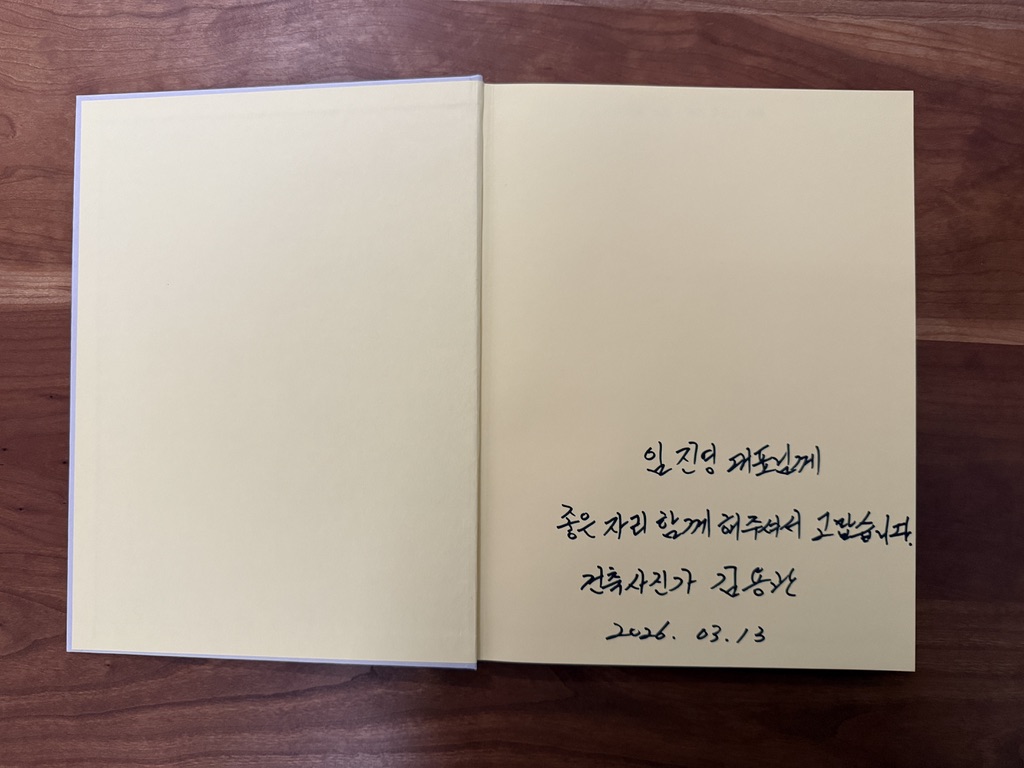 임진영 대표님께
좋은 자리 함께 해주셔서 고맙습니다.
건축사진가 김용관
2026. 03. 13